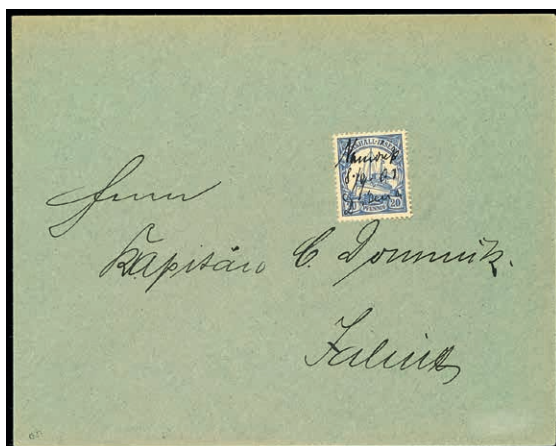 MARSHALL-INSELN
20 PFENNIG 20
Herrn
Kapitän C. Domnick.
Jaluit